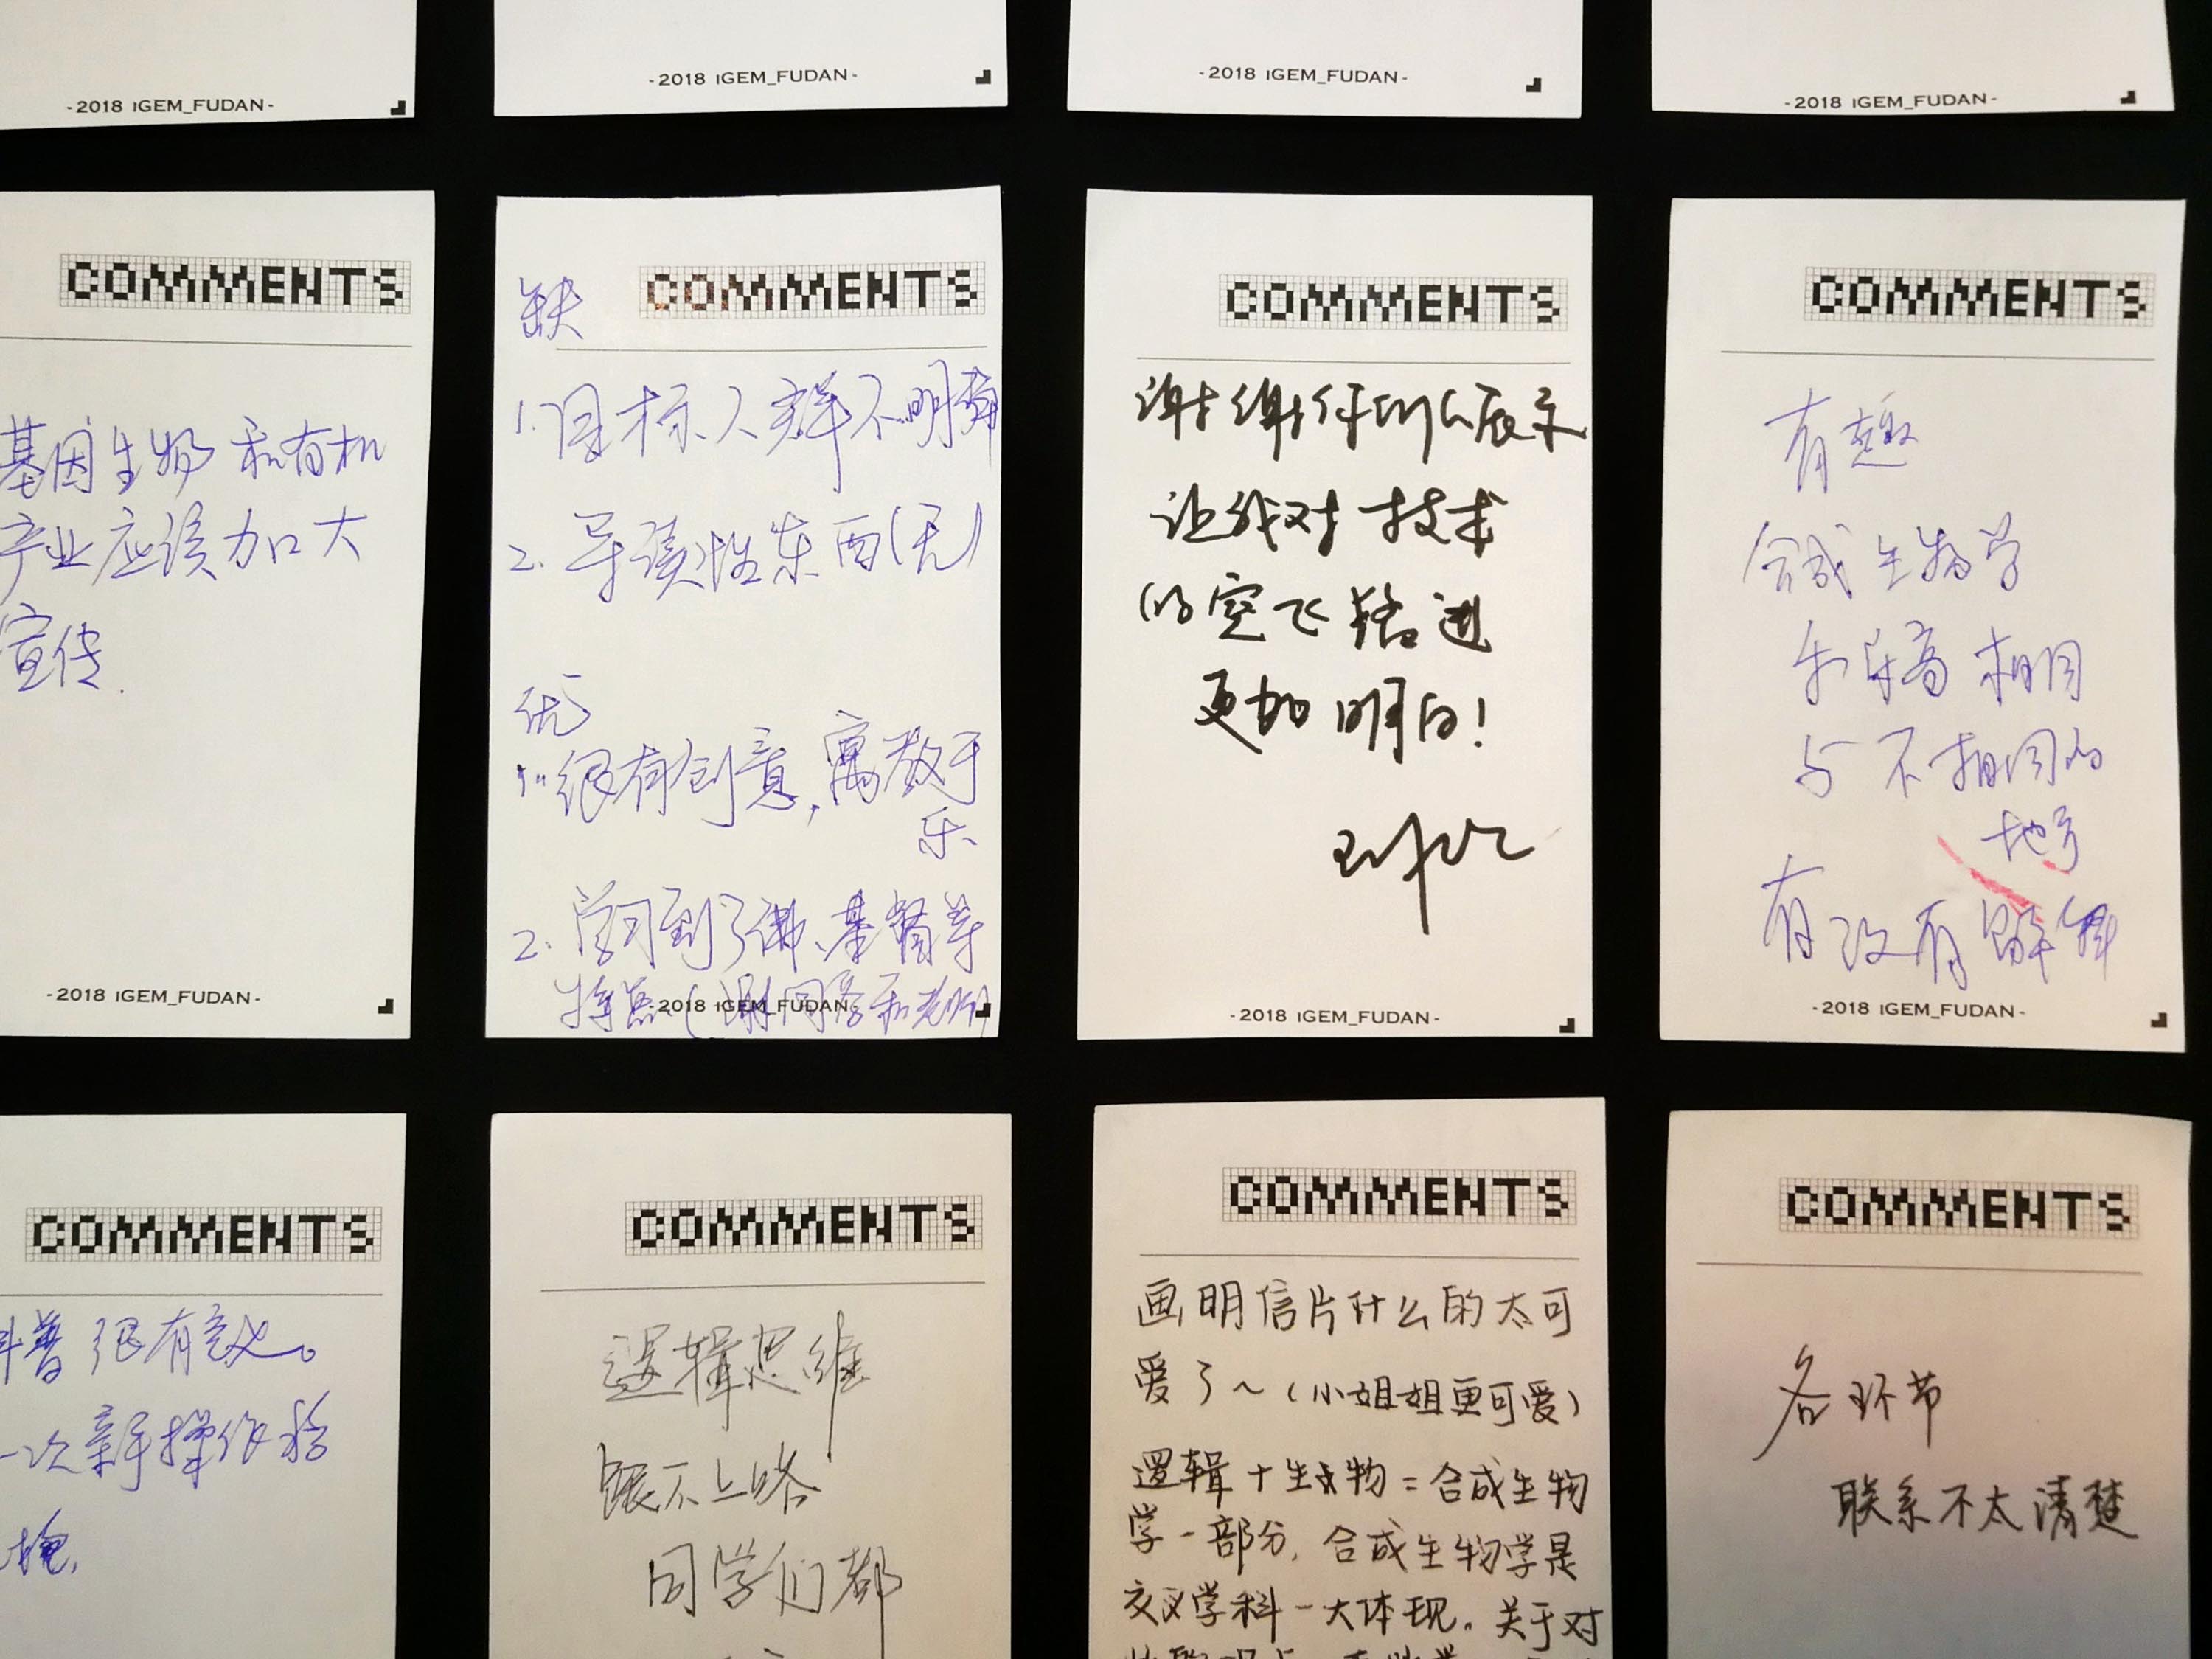 -2018 IGEM_FUDAN-
-2018 IGEM_FUDAN-
-2018 IGEM_FUDAN-
-2018 IGEM_FUDAN-
COMMENTS
基因生物和有机
产业应该加大
宣传.
-2018 IGEM_FUDAN-
缺
COMMENTS
1. 目标人群不明确
2. 导读性东西(无)
优
1. 很有创意,寓教于
乐
2. 学习到了佛、基督等
特点(谢同学和老师)
-2018 IGEM_FUDAN-
COMMENTS
谢谢你们的展示
让我对技术
的突飞猛进
更加明白!
-2018 IGEM_FUDAN-
COMMENTS
有趣
合成生物学
和乐高相同
与不相同的
地方
有没有
-2018 IGEM_FUDAN-
COMMENTS
科普很有意义。
一次新操作
COMMENTS
逻辑思维
跟不上咯
同学们都
COMMENTS
画明信片什么的太可
爱了~(小姐姐更可爱)
逻辑+生物=合成生物
学一部分,合成生物学是
交叉学科一大体现。关于对
COMMENTS
各环节
联系不太清楚